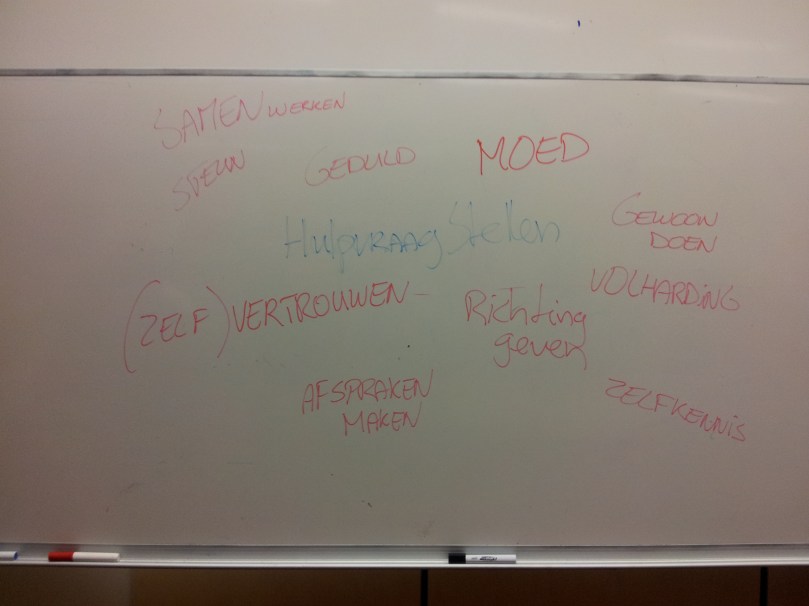 SAMENWERKEN
STEUN
GEDULD
MOED
Hulpvraag Stellen
GEWOON
DOEN
(ZELF)VERTROUWEN-
Richting
geven
VOLHARDiNG
AFSPRAKEN
MAKEN
ZELFKENNiS